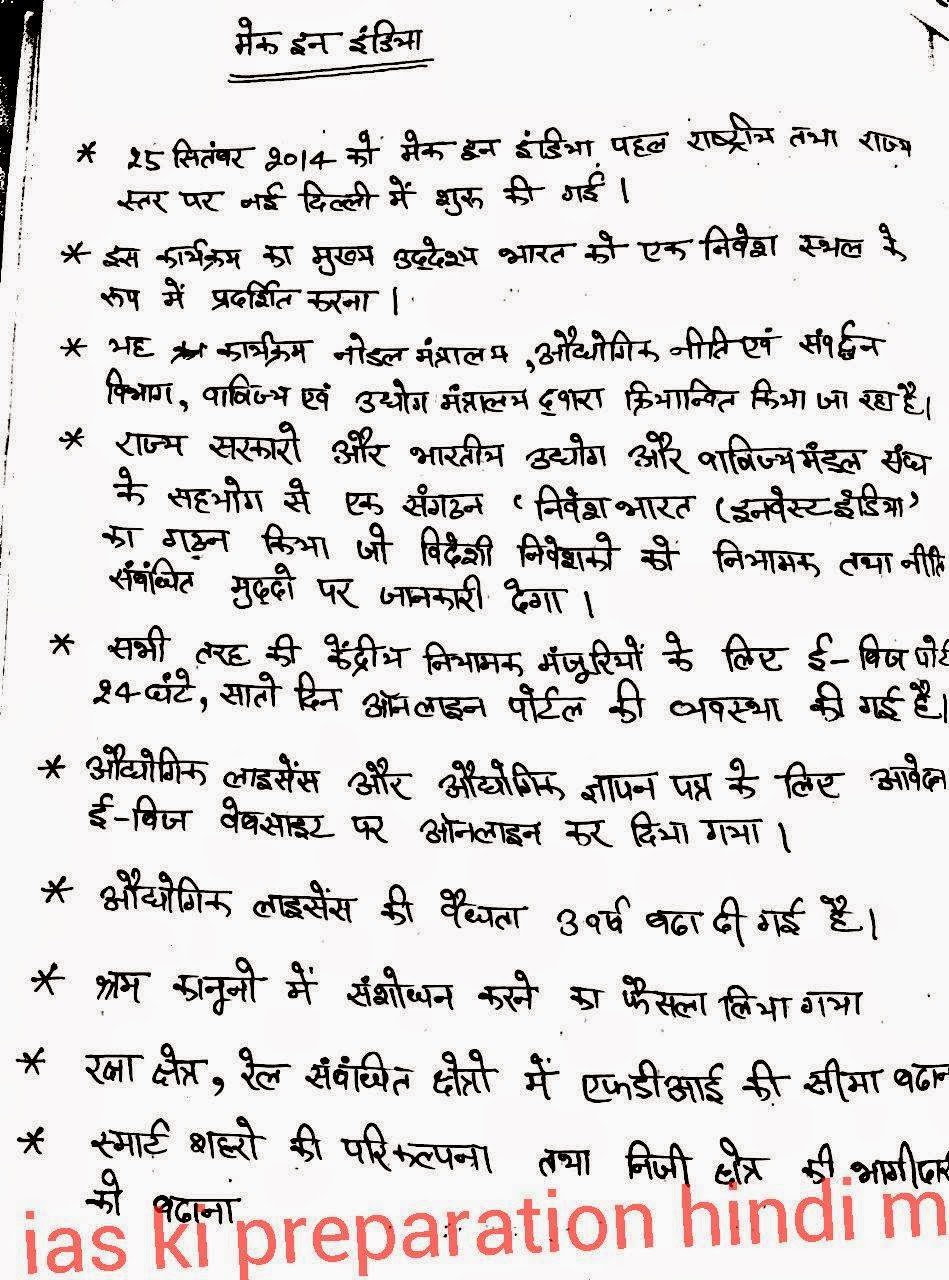 मेक इन इंडिया
* 25 सितंबर 2014 को मेक इन इंडिया पहल राष्ट्रीय तथा राज्य
स्तर पर नई दिल्ली में शुरू की गई ।
* इस कार्यक्रम का मुख्य उद्देश्य भारत को एक निवेश स्थल के
रूप में प्रदर्शित करना ।
* यह कार्यक्रम नोडल मंत्रालय, औद्योगिक नीति एवं संवर्द्धन
विभाग, वाणिज्य एवं उद्योग मंत्रालय द्वारा क्रियान्वित किया जा रहा है।
* राज्य सरकारो और भारतीय उद्योग और वाणिज्य मंडल संघ
के सहयोग से एक संगठन 'निवेश भारत (इनवेस्ट इंडिया'
का गठन किया जो विदेशी निवेशको को नियामक तथा नीति
संबंधित मुद्दो पर जानकारी देगा ।
* सभी तरह की केंद्रीय नियामक मंजूरियों के लिए ई-बिज पोर्ट
24 घंटे, सातो दिन ऑनलाइन पोर्टल की व्यवस्था की गई है।
* औद्योगिक लाइसेंस और औद्योगिक ज्ञापन पत्र के लिए आवेदन
ई-बिज वेबसाइट पर ऑनलाइन कर दिया गया ।
* औद्योगिक लाइसेंस की वैधता 3 वर्ष बढा दी गई है।
* श्रम कानूनो में संशोधन करने का फैसला लिया गया
* रक्षा क्षेत्र, रेल संबंधित क्षेत्रो में एफडीआई की सीमा बढान
* स्मार्ट शहरो की परिकल्पना तथा निजी क्षेत्र की भागीदार
को बढाना
ias ki preparation hindi m